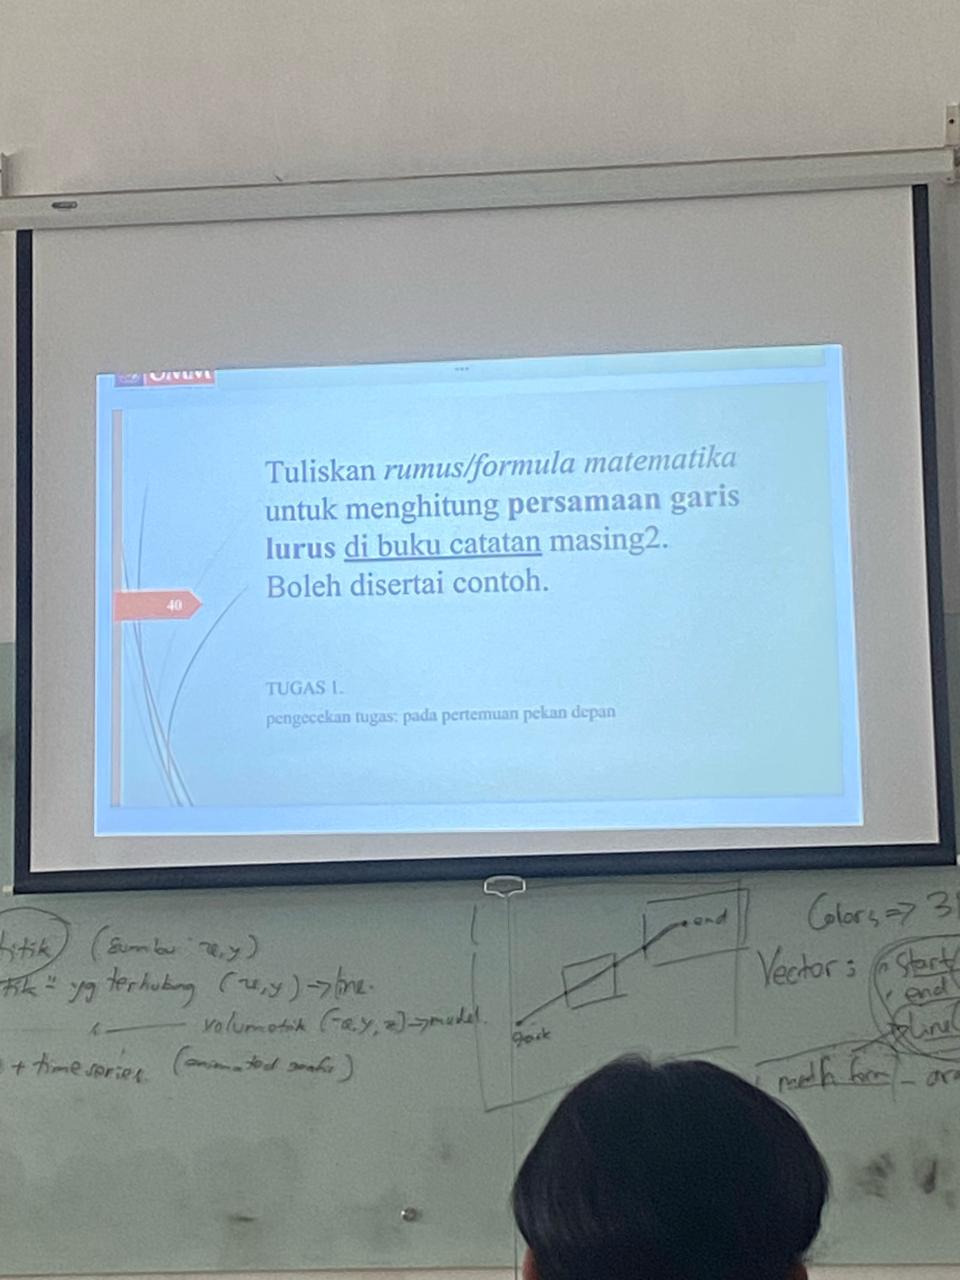 UMM
Tuliskan rumus/formula matematika
untuk menghitung persamaan garis
lurus di buku catatan masing2.
Boleh disertai contoh.
40
TUGAS 1.
pengecekan tugas: pada pertemuan pekan depan
titik (sumbu x,y)
yg terhubung (x,y) → line.
volumetrik (x,y,z) → model.
+ time series (animated grafis)
end
Colors ⇒ 3
Vector :
start
end
line
math form